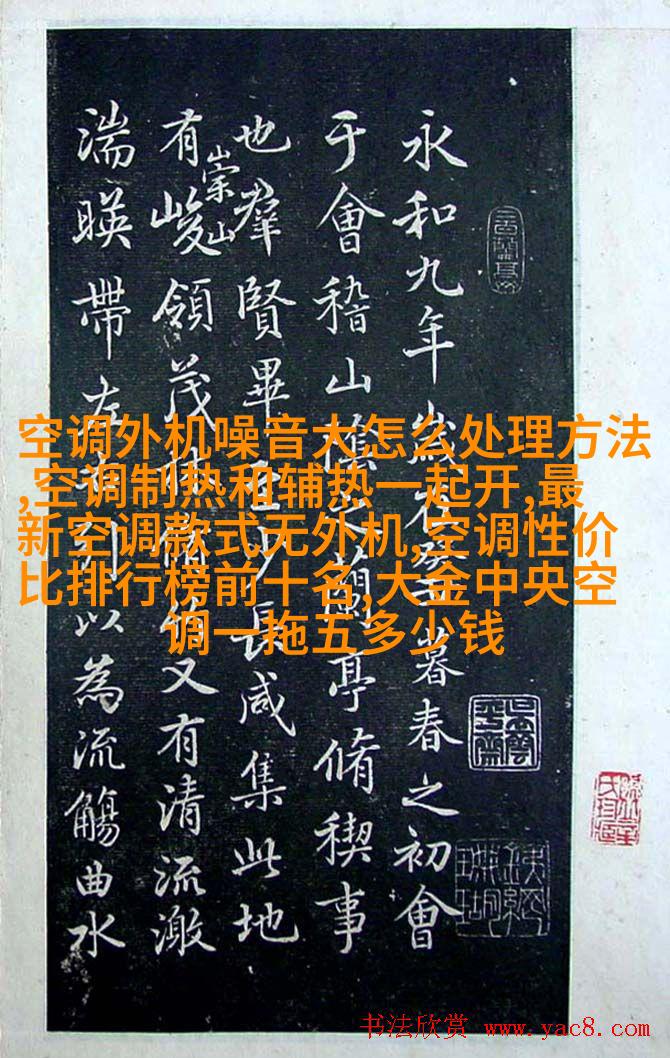 永和九年歲在癸丑暮春之初會
于會稽山陰之蘭亭脩稧事
也羣賢畢至少長咸集此地
有崇山峻領茂林脩竹又有清流激
湍暎帶左右引以為流觴曲水
空调外机噪音大怎么处理方法
,空调制热和辅热一起开,最
新空调款式无外机,空调性价
比排行榜前十名,大金中央空
调一拖五多少钱
书法欣赏 www.yac8.com